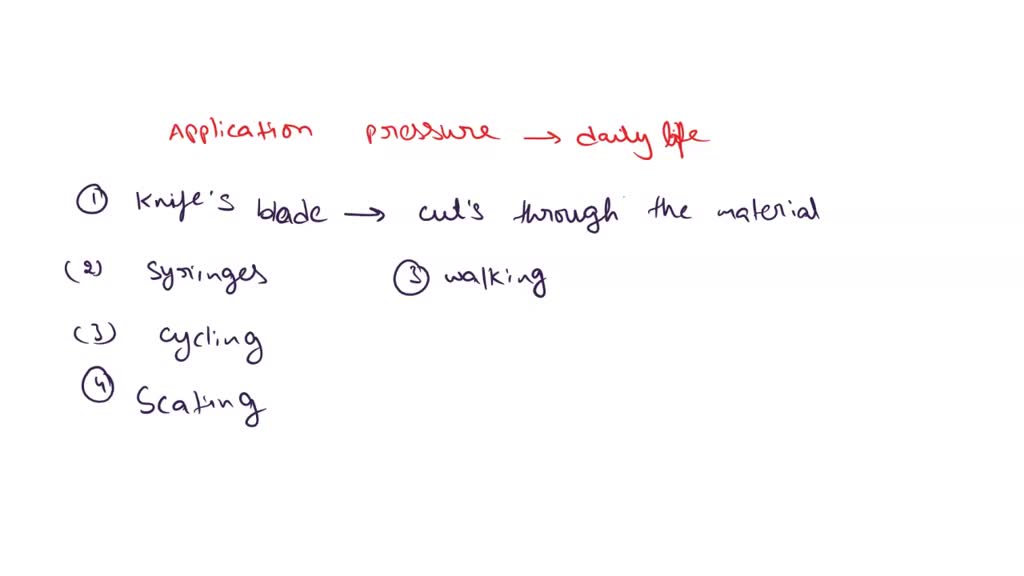 Application pressure → daily life
① Knife's blade → cut's through the material
(2) Syringes ③ walking
(3) cycling
④ Scating